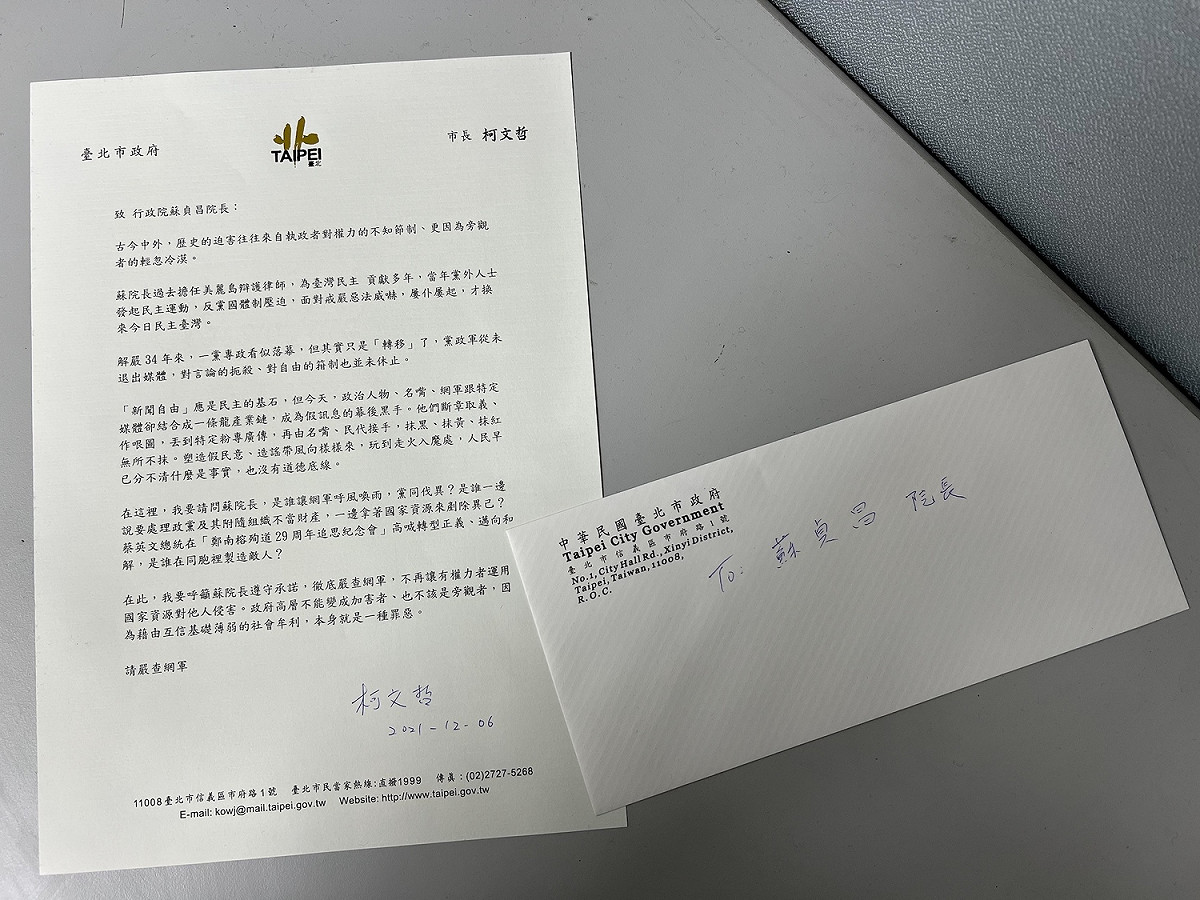 臺北市政府
TAIPEI
臺北
市長 柯文哲
致 行政院蘇貞昌院長：
古今中外，歷史的迫害往往來自執政者對權力的不知節制、更因為旁觀
者的輕忽冷漠。
蘇院長過去擔任美麗島辯護律師，為臺灣民主 貢獻多年，當年黨外人士
發起民主運動，反黨國體制壓迫，面對戒嚴惡法威嚇，屢仆屢起，才換
來今日民主臺灣。
解嚴 34 年來，一黨專政看似落幕，但其實只是「轉移」了，黨政軍從未
退出媒體，對言論的扼殺、對自由的箝制也並未休止。
「新聞自由」應是民主的基石，但今天，政治人物、名嘴、網軍跟特定
媒體卻結合成一條龍產業鏈，成為假訊息的幕後黑手。他們斷章取義、
作哏圖，丟到特定粉專廣傳，再由名嘴、民代接手，抹黑、抹黃、抹紅
無所不抹。塑造假民意、造謠帶風向樣樣來，玩到走火入魔處，人民早
已分不清什麼是事實，也沒有道德底線。
在這裡，我要請問蘇院長，是誰讓網軍呼風喚雨，黨同伐異？是誰一邊
說要處理政黨及其附隨組織不當財產，一邊拿著國家資源來剷除異己？
蔡英文總統在「鄭南榕殉道 29 周年追思紀念會」高喊轉型正義、邁向和
解，是誰在同胞裡製造敵人？
在此，我要呼籲蘇院長遵守承諾，徹底嚴查網軍，不再讓有權力者運用
國家資源對他人侵害。政府高層不能變成加害者、也不該是旁觀者，因
為藉由互信基礎薄弱的社會牟利，本身就是一種罪惡。
請嚴查網軍
柯文哲
2021-12-06
11008臺北市信義區市府路1號 臺北市民當家熱線:直撥1999 傳真：(02)2727-5268
E-mail: kowj@mail.taipei.gov.tw Website: http://www.taipei.gov.tw
中華民國臺北市政府
Taipei City Government
臺北市信義區市府路1號
No.1, City Hall Rd., Xinyi District,
Taipei, Taiwan, 11008,
R.O.C.
To: 蘇貞昌 院長